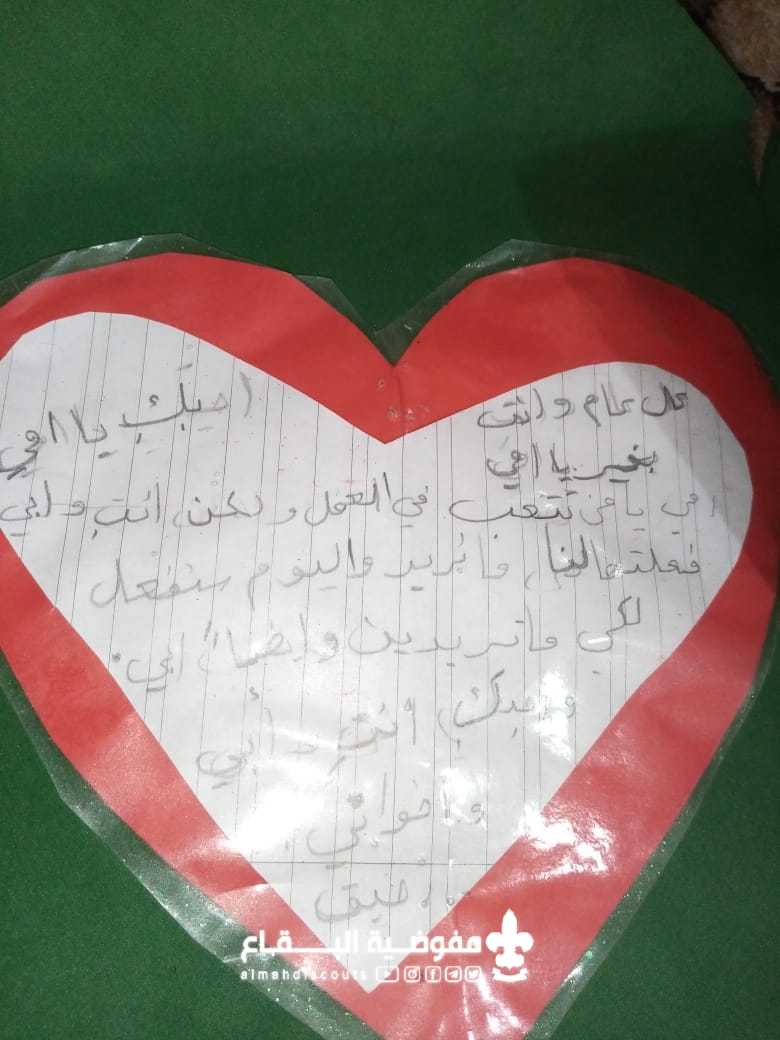 كل عام وانتِ
بخير يا امي
احبكِ يا امي
امي يا من تتعب في العمل ولكن انتِ وابي
فعلتما لنا ما نريد واليوم سنفعل
لكي ما تريدين وايضاً ابي
واحبكِ انتِ وأبي
واخواتي
مفوضية البقاع
almahdiscouts